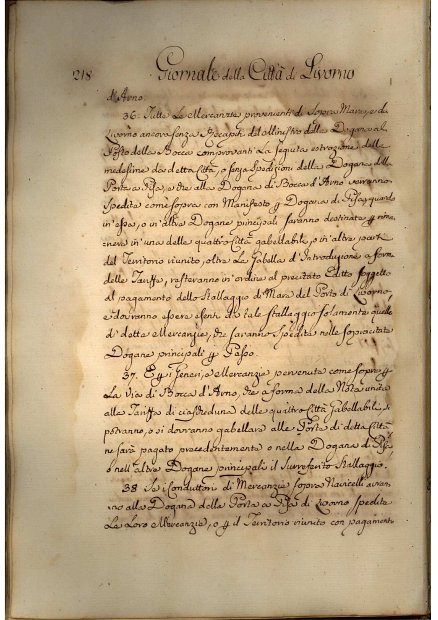 218 Giornale della Città di Livorno
d'Arno.
36. Tutte Le Mercanzie provenienti di Sopra Mare, e da
Livorno ancora senza Recapiti del Ministro della Dogana al
Posto della Bocca comprovanti La seguita estrazione delle
medesime da detta Città, o senza Spedizioni della Dogana della
Porta a Pisa, e che alla Dogana di Bocca d'Arno verranno
Spedite come sopra con Manifesto p Dogana di Pisa, quando
in essa, o in altra Dogane principali saranno destinate p rima-
nere in una delle quattro Città gabellabili, o in altra parte
del Territorio riunito, oltre La Gabella d'Introduzione a forma
delle Tariffe, resteranno in ordine al precitato Editto soggette
al pagamento dello Stallaggio di Mare del Porto di Livorno
e dovranno essere esenti da tale stallaggio solamente quelle
di dette Mercanzie, che saranno Spedite nelle sopracitate
Dogane principali p Passo.
37. E p i Generi, o Mercanzie pervenute come sopra p
La Via di Bocca d'Arno, che a forma della Nota unita
alla Tariffa di ciascheduna delle quattro Città Gabellabili, si
potranno, o si dovranno gabellare alle Porte di dette Città
ne sarà pagato precedentemente o nella Dogana di Pisa
o nell'altre Dogane principali il Surreferito Stallaggio.
38 Se i Conduttori di Mercanzie sopra Navicelli avran-
no alla Dogana della Porta a Pisa di Livorno, spedite
Le Loro Mercanzie, o p il Territorio riunito con pagamento